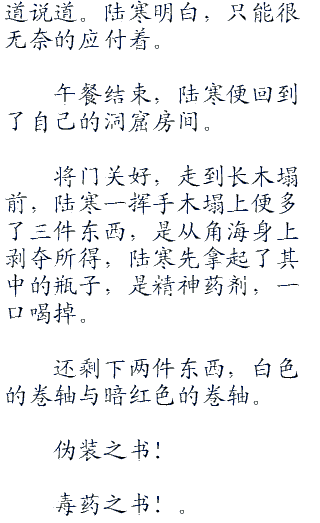 道说道。陆寒明白，只能很
无奈的应付着。
午餐结束，陆寒便回到
了自己的洞窟房间。
将门关好，走到长木塌
前，陆寒一挥手木塌上便多
了三件东西，是从角海身上
剥夺所得，陆寒先拿起了其
中的瓶子，是精神药剂，一
口喝掉。
还剩下两件东西，白色
的卷轴与暗红色的卷轴。
伪装之书！
毒药之书！。